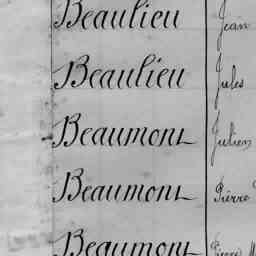 Beaulieu Jean
Beaulieu Jules
Beaumont Julien
Beaumont Pierre
Beaumont Pierre